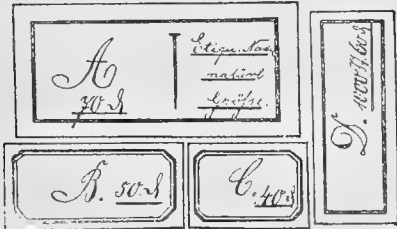 A
70 ₰
Etiqu. Nach
natürl
Größe.
B. 50 ₰
C. 40 ₰
D. 1000 M. 60 ₰